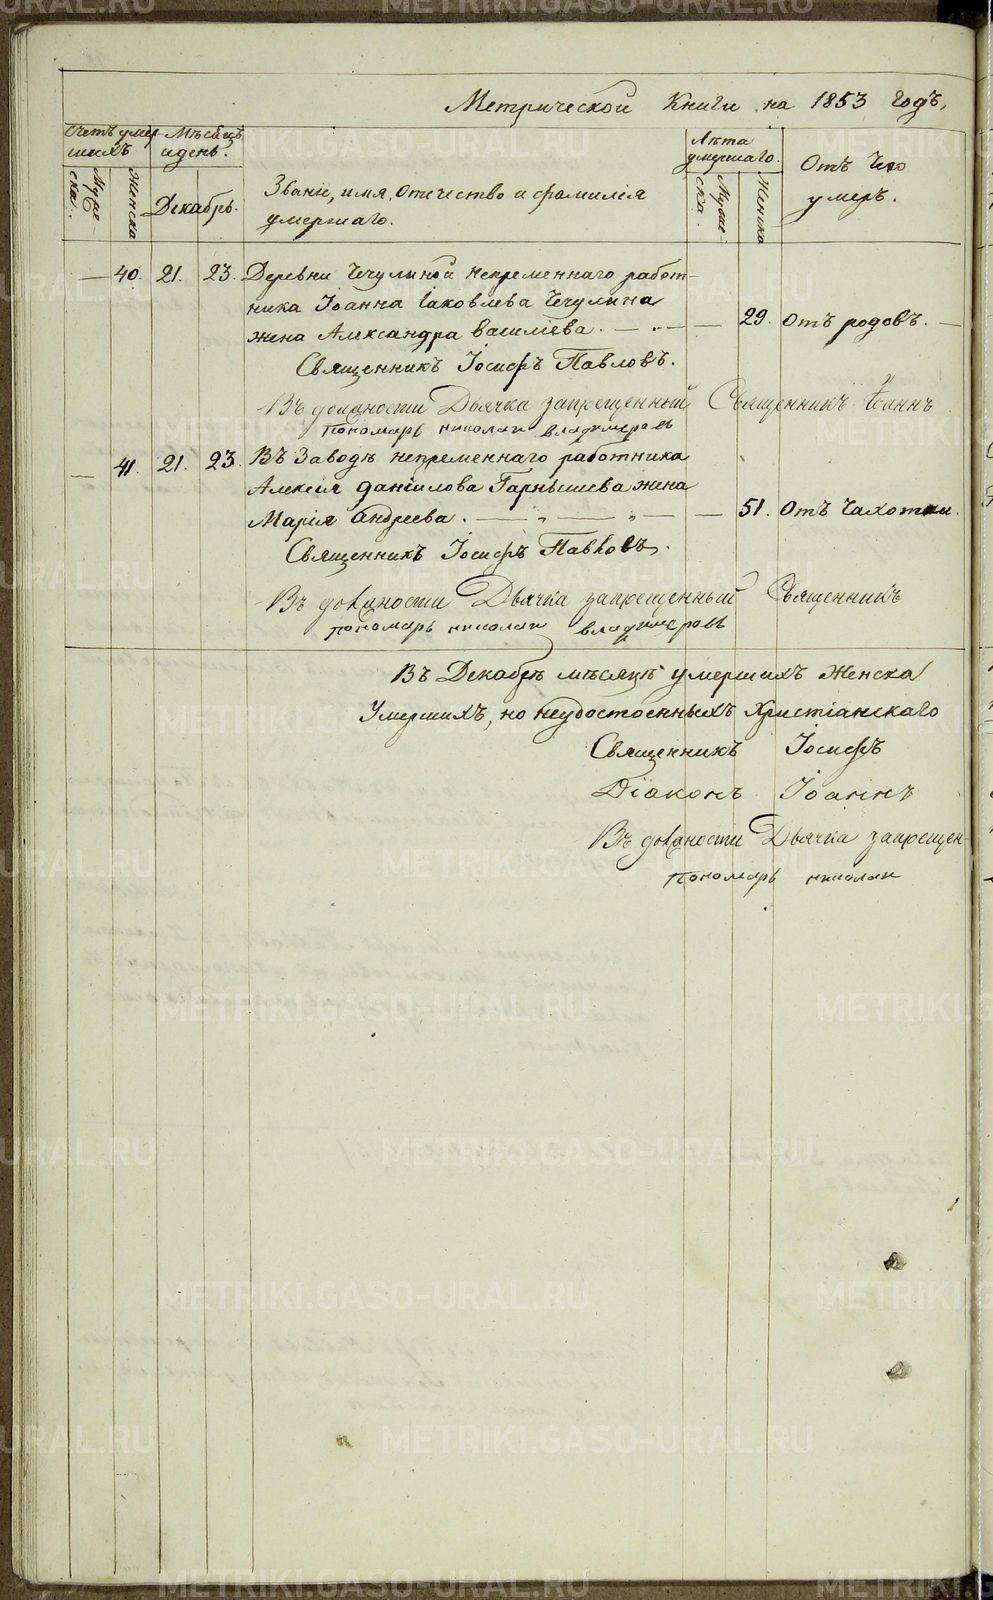 Метрической Книги на 1853 годъ,
Счетъ умер-
шихъ
Мѣсяцъ
и день.
Лѣта
умершаго.
Отъ Чего
умеръ.
Муже-
ска.
Женска
Декабрь.
Званіе, имя, Отчество и фамилія
умершаго.
Муже-
ска.
Женска
— 40. 21. 23. Деревни Чечулиной непременнаго работ-
ника Іоанна Іаковлева Чечулина
жена Александра Василіева. — — 29. Отъ родовъ. —
Священникъ Іосифъ Павловъ.
Въ должности Дьячка запрещенный Священникъ Іоаннъ
пономарь николаи владимеровъ
— 41. 21. 23. Въ Заводѣ непременнаго работника
Алексія Даніилова Гарнышева жена
Марія Андреева. — „ — „ — — 51. Отъ Чахотки.
Священникъ Іосифъ Павловъ.
Въ должности Дьячка запрещенный Священникъ
пономарь николаи владимеровъ
Въ Декабрѣ мѣсяцѣ умершихъ Женска
Умершихъ, но неудостоенныхъ Христіанскаго
Священникъ Іосифъ
Діаконъ Іоаннъ
Въ должности Дьячка запрещен-
пономарь николаи
METRIKI.GASO-URAL.RU